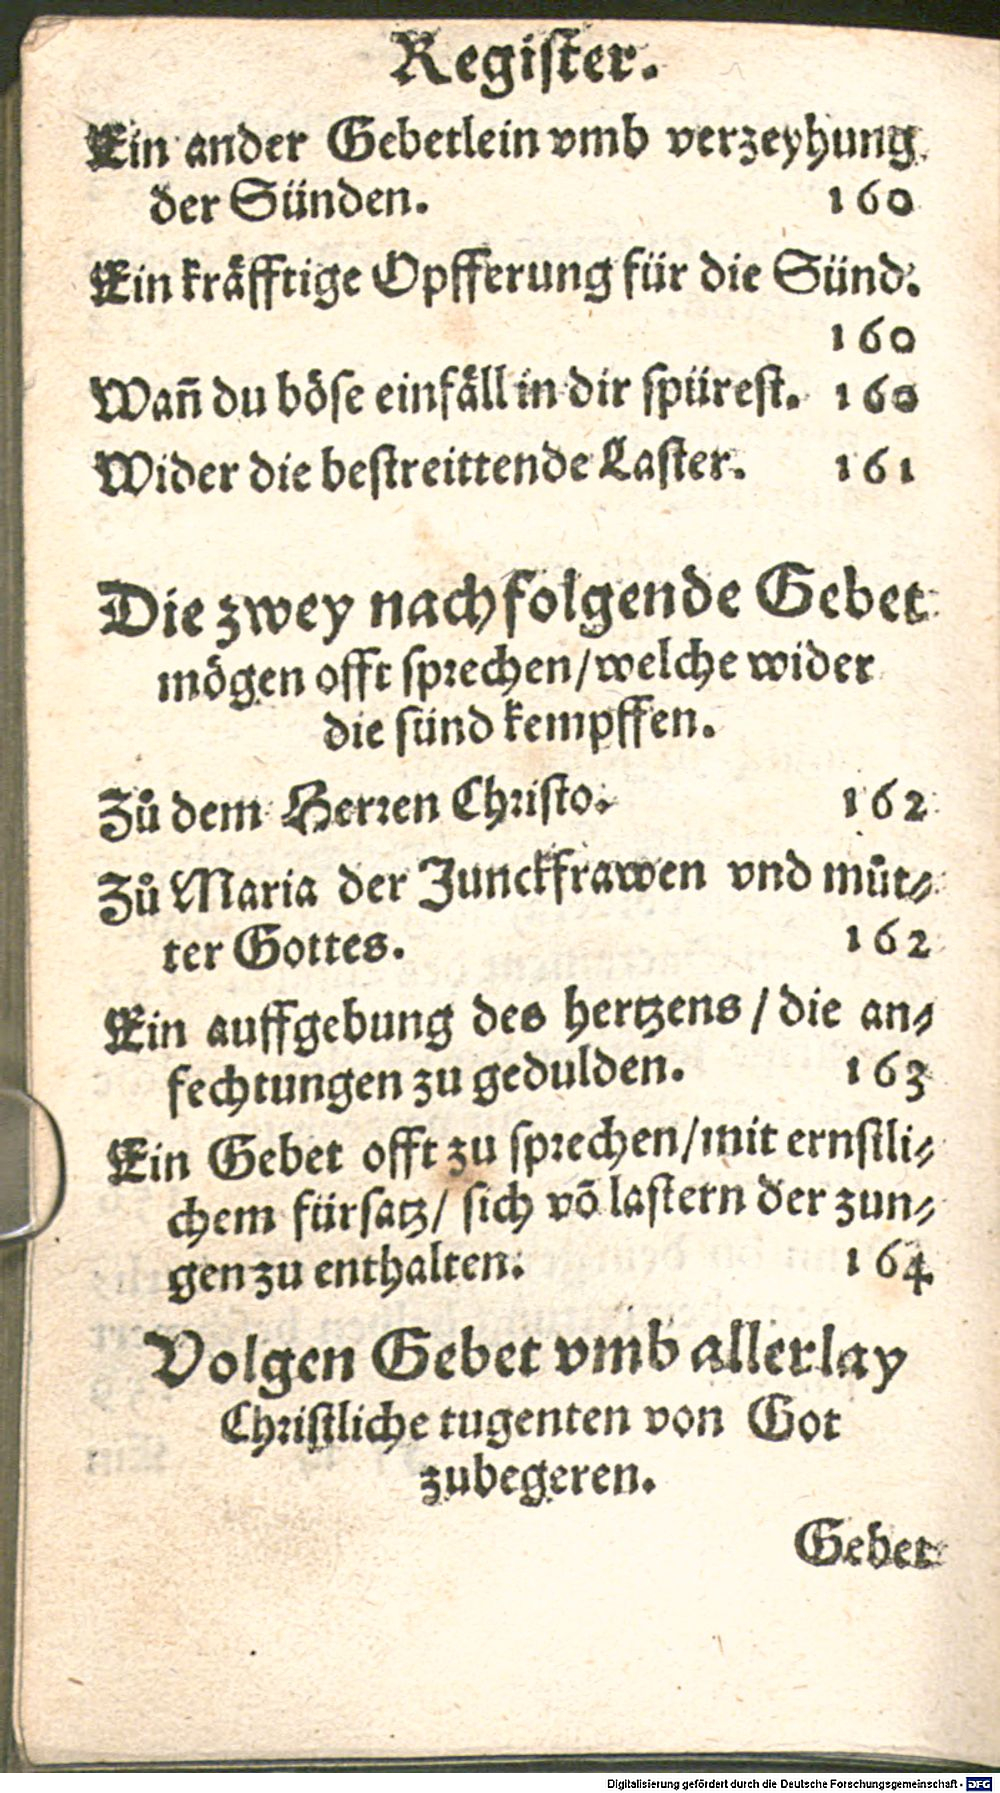 Register.
Ein ander Gebetlein vmb verzeyhung
der Sünden. 160
Ein kräfftige Opfferung für die Sünd.
160
Wañ du böse einfäll in dir spürest. 160
Wider die bestreittende Laster. 161
Die zwey nachfolgende Gebet
mögen offt sprechen/welche wider
die sünd kempffen.
Zů dem Herren Christo. 162
Zů Maria der Junckfrawen vnd můt⸗
ter Gottes. 162
Ein auffgebung des hertzens/die an⸗
fechtungen zu gedulden. 163
Ein Gebet offt zu sprechen/mit ernstli⸗
chem fürsatz/ sich võ lastern der zun⸗
gen zu enthalten. 164
Volgen Gebet vmb allerlay
Christliche tugenten von Got
zubegeren.
Gebet
Digitalisierung gefördert durch die Deutsche Forschungsgemeinschaft - DFG